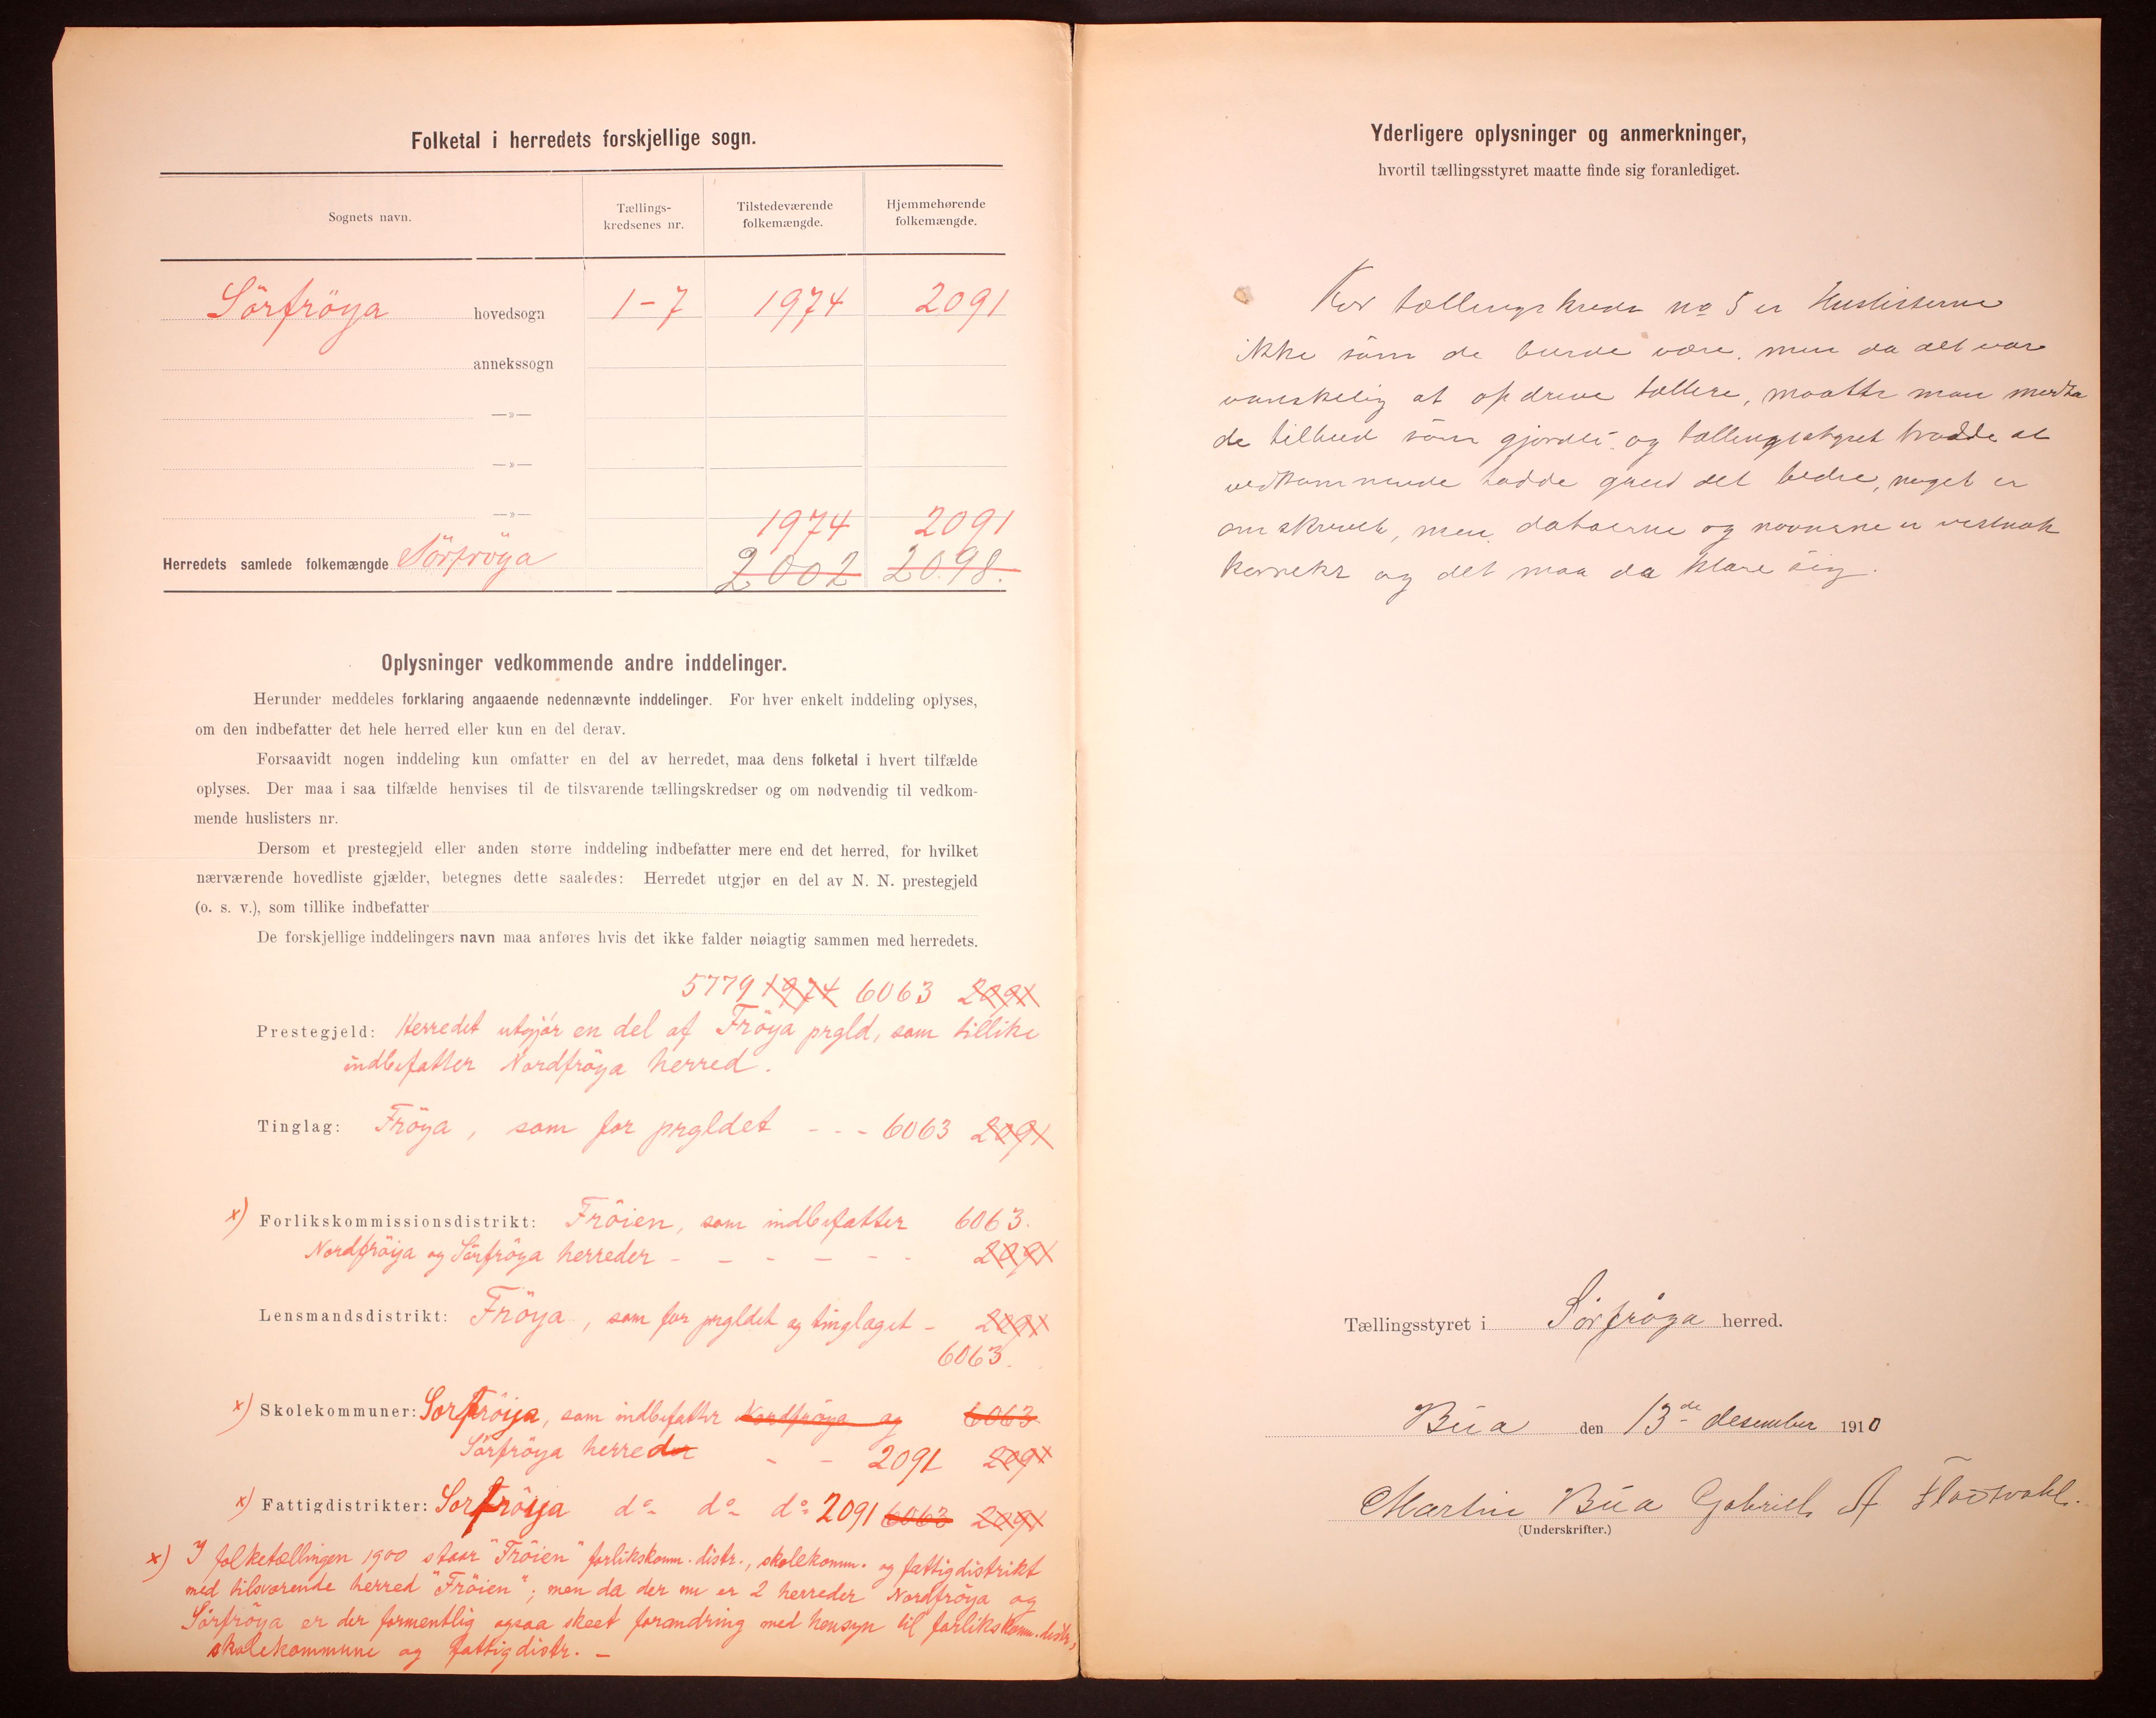 Folketal i herredets forskjellige sogn.
Sognets navn.
Tællings-
kredsenes nr.
Tilstedeværende
folkemængde.
Hjemmehørende
folkemængde.
Sörfröya hovedsogn 1-7 1974 2091
annekssogn
—»—
—»—
—»—
1974 2091
Herredets samlede folkemængde Sörfröya 2002 2098.
Oplysninger vedkommende andre inddelinger.
Herunder meddeles forklaring angaaende nedennævnte inddelinger. For hver enkelt inddeling oplyses,
om den indbefatter det hele herred eller kun en del derav.
Forsaavidt nogen inddeling kun omfatter en del av herredet, maa dens folketal i hvert tilfælde
oplyses. Der maa i saa tilfælde henvises til de tilsvarende tællingskredser og om nødvendig til vedkom-
mende huslisters nr.
Dersom et prestegjeld eller anden større inddeling indbefatter mere end det herred, for hvilket
nærværende hovedliste gjælder, betegnes dette saaledes: Herredet utgjør en del av N. N. prestegjeld
(o. s. v.), som tillike indbefatter
De forskjellige inddelingers navn maa anføres hvis det ikke falder nøiagtig sammen med herredets.
5779 1974 6063 2091
Prestegjeld: Herredet utgjör en del af Fröya prgld, som tillike
indbefatter Nordfröya herred.
Tinglag: Fröya, som for prgldet - - - 6063 2091
x) Forlikskommissionsdistrikt: Fröien, som indbefatter 6063.
Nordfröya og Sörfröya herreder - - - - - - 2091
Lensmandsdistrikt: Fröya, som for prgldet og tinglaget - 2091
6063.
x) Skolekommuner: Sorfröya, som indbefatter Nordfröya og 6063
Sörfröya herreder - - 2091 2091
x) Fattigdistrikter: Sorfröya do do do 2091 6063 2091
x) I folketællingen 1900 staar "Fröien" forlikskomm. distr., skolekomm. og fattigdistrikt
med tilsvarende herred "Fröien"; men da der nu er 2 herreder Nordfröya og
Sörfröya er der formentlig ogsaa skeet forandring med hensyn til forlikskomm. distr.,
skolekommune og fattigdistr. —
Yderligere oplysninger og anmerkninger,
hvortil tællingsstyret maatte finde sig foranlediget.
For tællingskreds no 5 er Huslisterne
ikke som de burde være, men da det var
vanskelig at opdrive tællere, maatte man modta
de tilbud som gjordes og tællingsstyret trodde at
vedkommende hadde gjort det bedre, noget er
omskrevet, men datoerne og navnene er vistnok
korrekt og det maa da klare sig.
Tællingsstyret i Sörfröya herred.
Búa den 13de desember 1910
Martin Búa Gabriel A
(Underskrifter.)